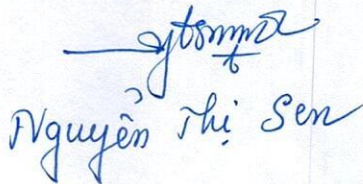 Nguyễn Thị Sen